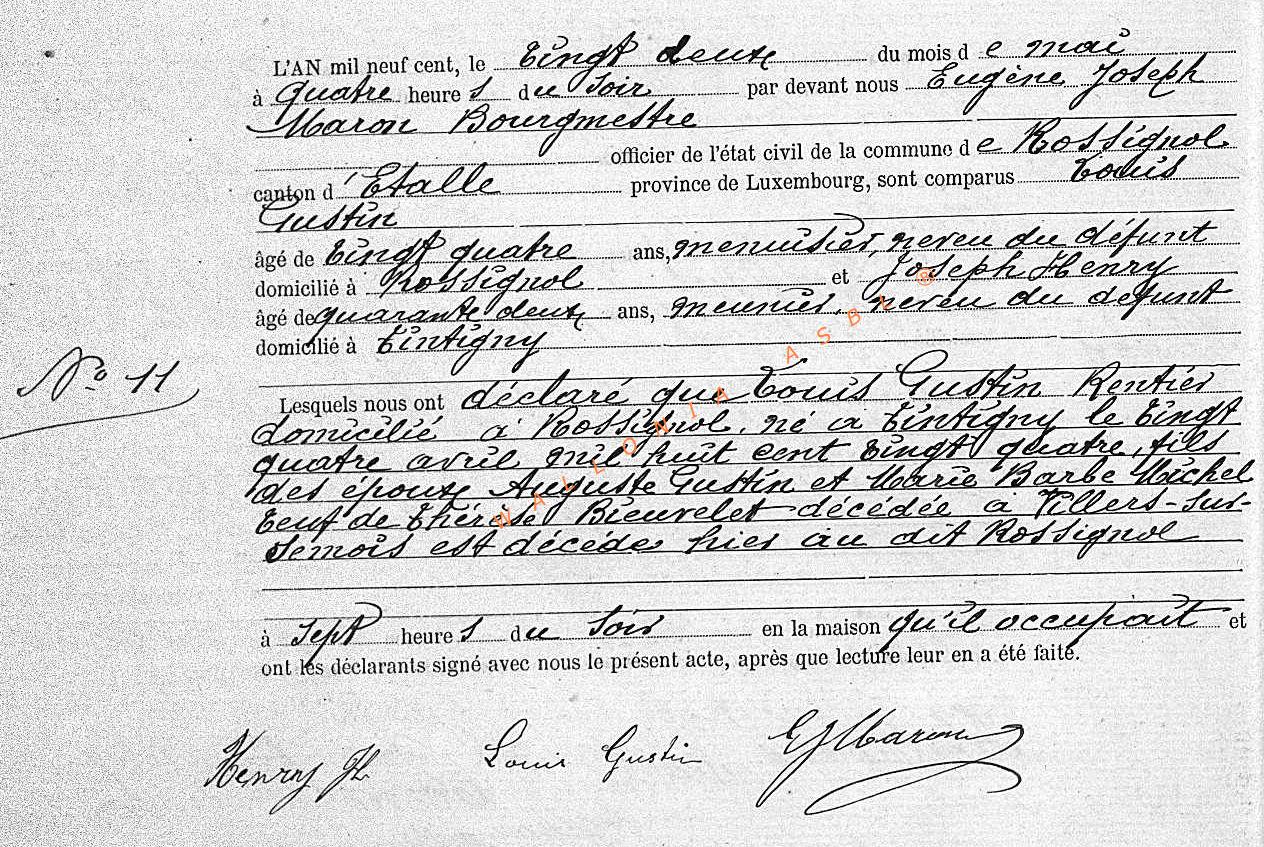 L'AN mil neuf cent, le vingt deux du mois de mai
à quatre heures du soir par devant nous Eugène Joseph
Maron Bourgmestre
officier de l'état civil de la commune de Rossignol
canton d'Etalle province de Luxembourg, sont comparus Louis
Gustin
âgé de vingt quatre ans, menuisier, neveu du défunt
domicilié à Rossignol et Joseph Henry
âgé de quarante deux ans, meunier, neveu du defunt
domicilié à Tintigny
No 11
Lesquels nous ont déclaré que Louis Gustin Rentier
domicilié à Rossignol, né à Tintigny le vingt
quatre avril mil huit cent vingt quatre, fils
des époux Auguste Gustin et Marie Barbe Michel
veuf de Thérèse Bieuvelet décédée à Villers-sur-
Semois est décédé hier au dit Rossignol
à sept heures du soir en la maison qu'il occupait et
ont les déclarants signé avec nous le présent acte, après que lecture leur en a été faite.
Henry Jh Louis Gustin EJMaron
WALLONIA ASBL ®